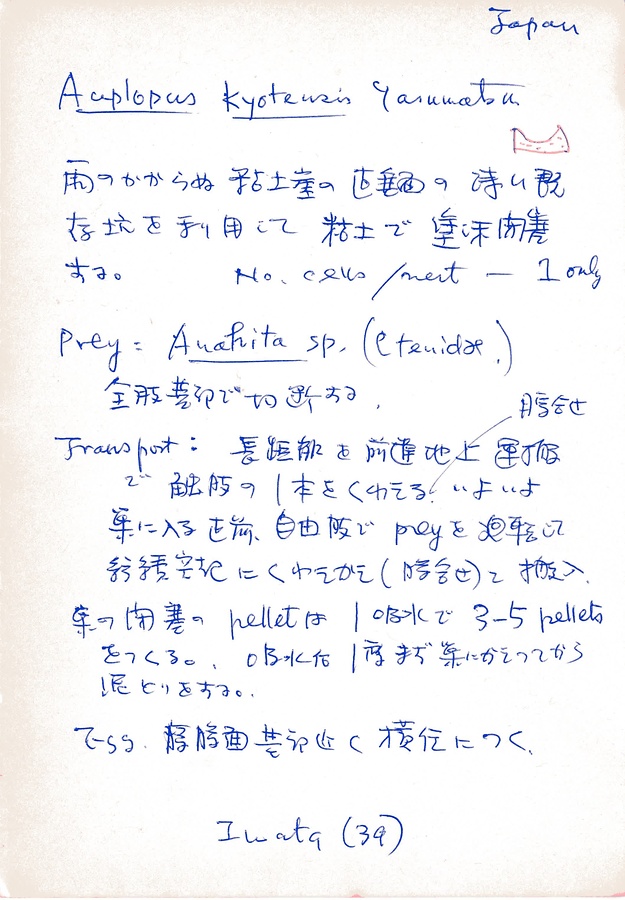 Japan
Auplopus Kyotensis Yasumatsu
雨のかからぬ 粘土崖の 直垂面の 浅い既
存坑を利用して 粘土で 塗沫閉塞
する。 No. cells/nest — 1 only
Prey = Anahita sp. (Ctenidae.)
全肢基部で切断する.
腹合せ
Transport: 長距離を前進地上運搬
で 触肢の1本をくわえる. いよいよ
巣に入る直前、自由肢で preyを廻転して
紡績突起にくわえかえ(腹合せ)て 搬入.
巣の閉塞の pelletは 1吸水で 3-5 pellets
をつくる。. 吸水后 1度まず巣にかえってから
泥とりをする。.
Egg. 腹面基部近く 横位につく.
Iwata (39)